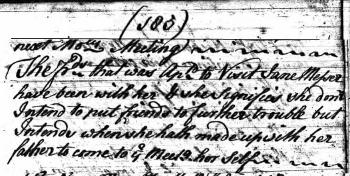 (183)
next Mo: Meeting
The frds that was apt: to Visit Jane Messer
have been with her & she signifies she dont
Intend to put friends to further trouble but
Intends when she hath made up with her
father to come to ye Meetg her Self